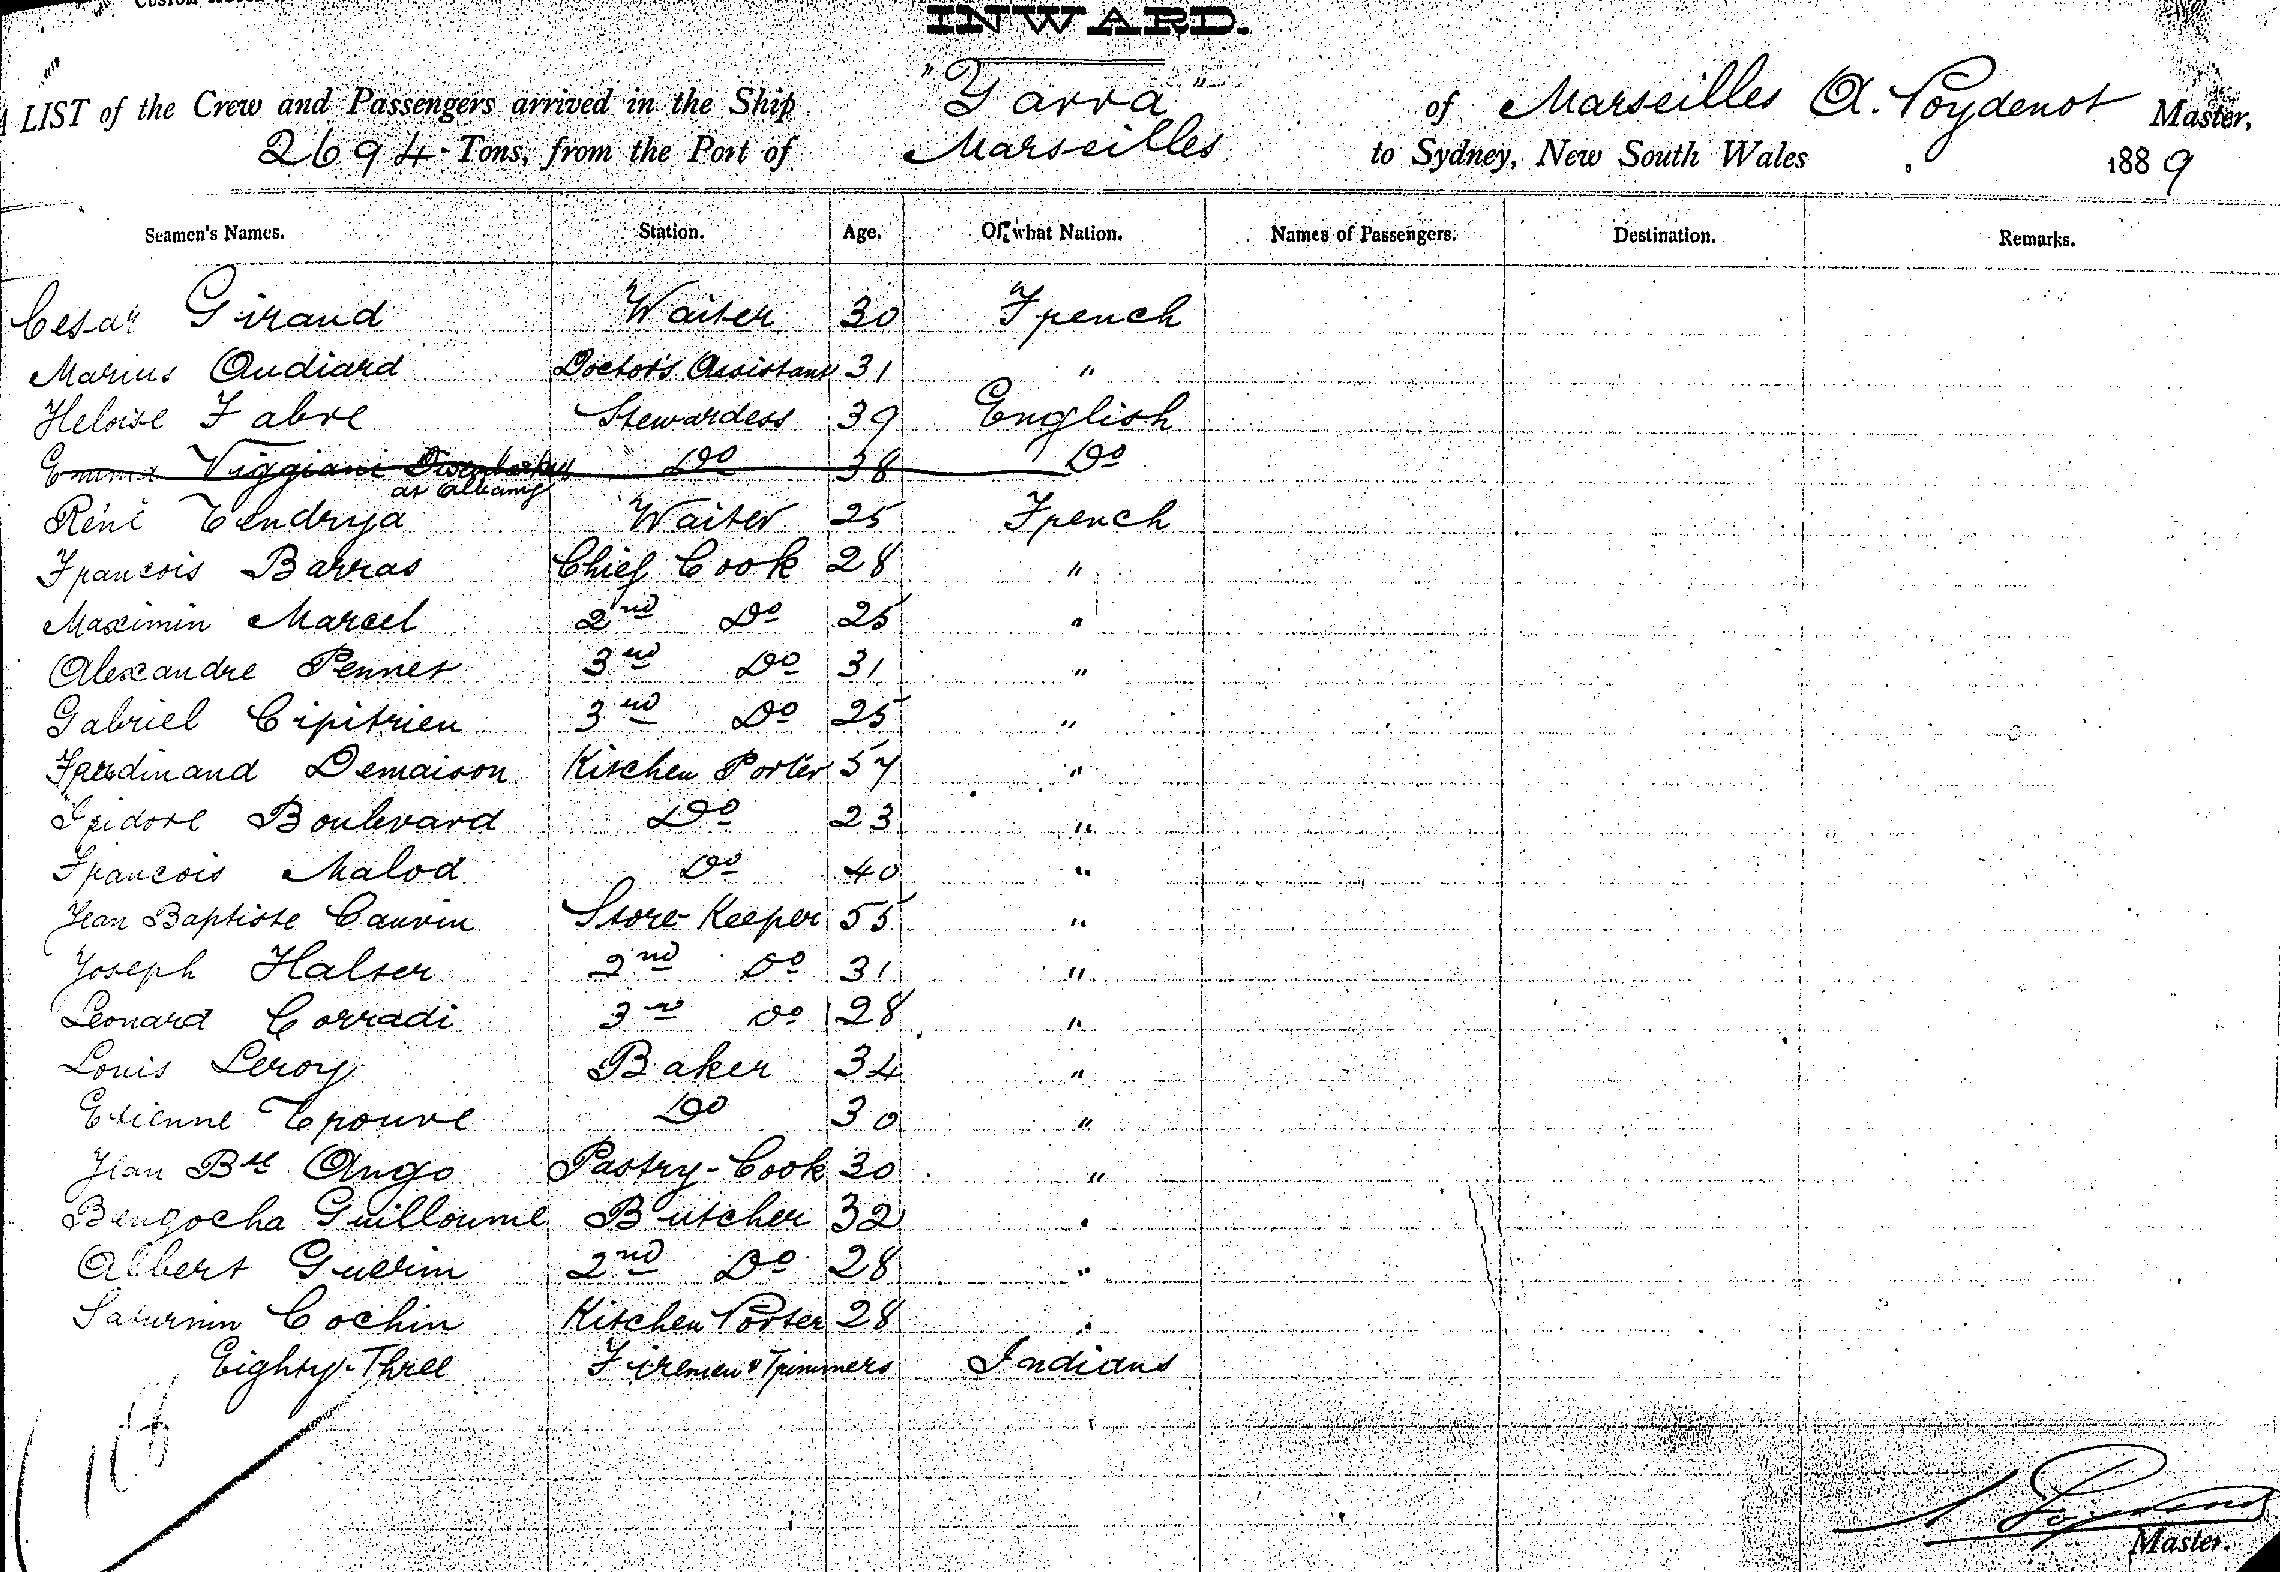 INWARD.
A LIST of the Crew and Passengers arrived in the Ship "Yarra" of Marseilles A. Poydenot Master,
2694 Tons, from the Port of Marseilles to Sydney, New South Wales 1889
Seamen's Names. Station. Age. Of what Nation. Names of Passengers. Destination. Remarks.
Cesar Giraud Waiter 30 French
Marius Audiard Doctor's Assistant 31 "
Heloise Fabre Stewardess 39 English
Emma Viggiani Disembarked Do 38 Do
at Albany
Réné Tendrya Waiter 25 French
Francois Barras Chief Cook 28 "
Maximin Marcel 2nd Do 25 "
Alexandre Pennet 3nd Do 31 "
Gabriel Cipitrien 3nd Do 25 "
Ferdinand Demaison Kitchen Porter 57 "
Isidore Boulevard Do 23 "
Francois Malod Do 40 "
Jean Baptiste Cauvin Store Keeper 55 "
Joseph Halter 2nd Do 31 "
Leonard Corradi 3rd Do 28 "
Louis Leroy Baker 34 "
Etienne Trouve Do 30 "
Jean Bte Ango Pastry-Cook 30 "
Bengocha Guilloume Butcher 32 "
Albert Guerin 2nd Do 28 "
Saturnin Cochin Kitchen Porter 28 "
Eighty-Three Firemen & Trimmers Indians
A Poydenot
Master.